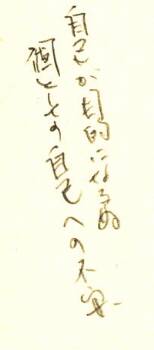 自己が目的になる為
個としての自己への不安